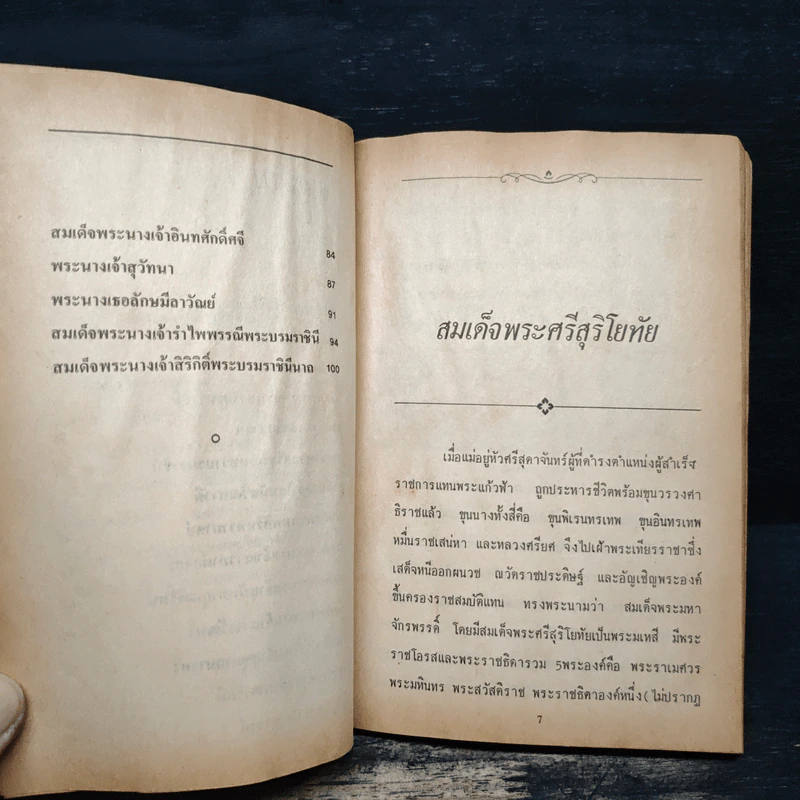 สมเด็จพระนางเจ้าอินทศักดิ์ศจี 84
พระนางเจ้าสุวัทนา 87
พระนางเธอลักษมีลาวัณย์ 91
สมเด็จพระนางเจ้ารำไพพรรณีพระบรมราชินี 94
สมเด็จพระนางเจ้าสิริกิติ์พระบรมราชินีนาถ 100
สมเด็จพระศรีสุริโยทัย
เมื่อแม่อยู่หัวศรีสุดาจันทร์ผู้ที่ดำรงตำแหน่งผู้สำเร็จ
ราชการแทนพระแก้วฟ้า ถูกประหารชีวิตพร้อมขุนวรวงศา
ธิราชแล้ว ขุนนางทั้งสี่คือ ขุนพิเรนทรเทพ ขุนอินทรเทพ
หมื่นราชเสน่หา และหลวงศรียศ จึงไปเฝ้าพระเทียรราชาซึ่ง
เสด็จหนีออกผนวช ณวัดราชประดิษฐ์ และอัญเชิญพระองค์
ขึ้นครองราชสมบัติแทน ทรงพระนามว่า สมเด็จพระมหา
จักรพรรดิ์ โดยมีสมเด็จพระศรีสุริโยทัยเป็นพระมเหสี มีพระ
ราชโอรสและพระราชธิดารวม 5พระองค์คือ พระราเมศวร
พระมหินทร พระสวัสดิราช พระราชธิดาองค์หนึ่ง(ไม่ปรากฏ
7